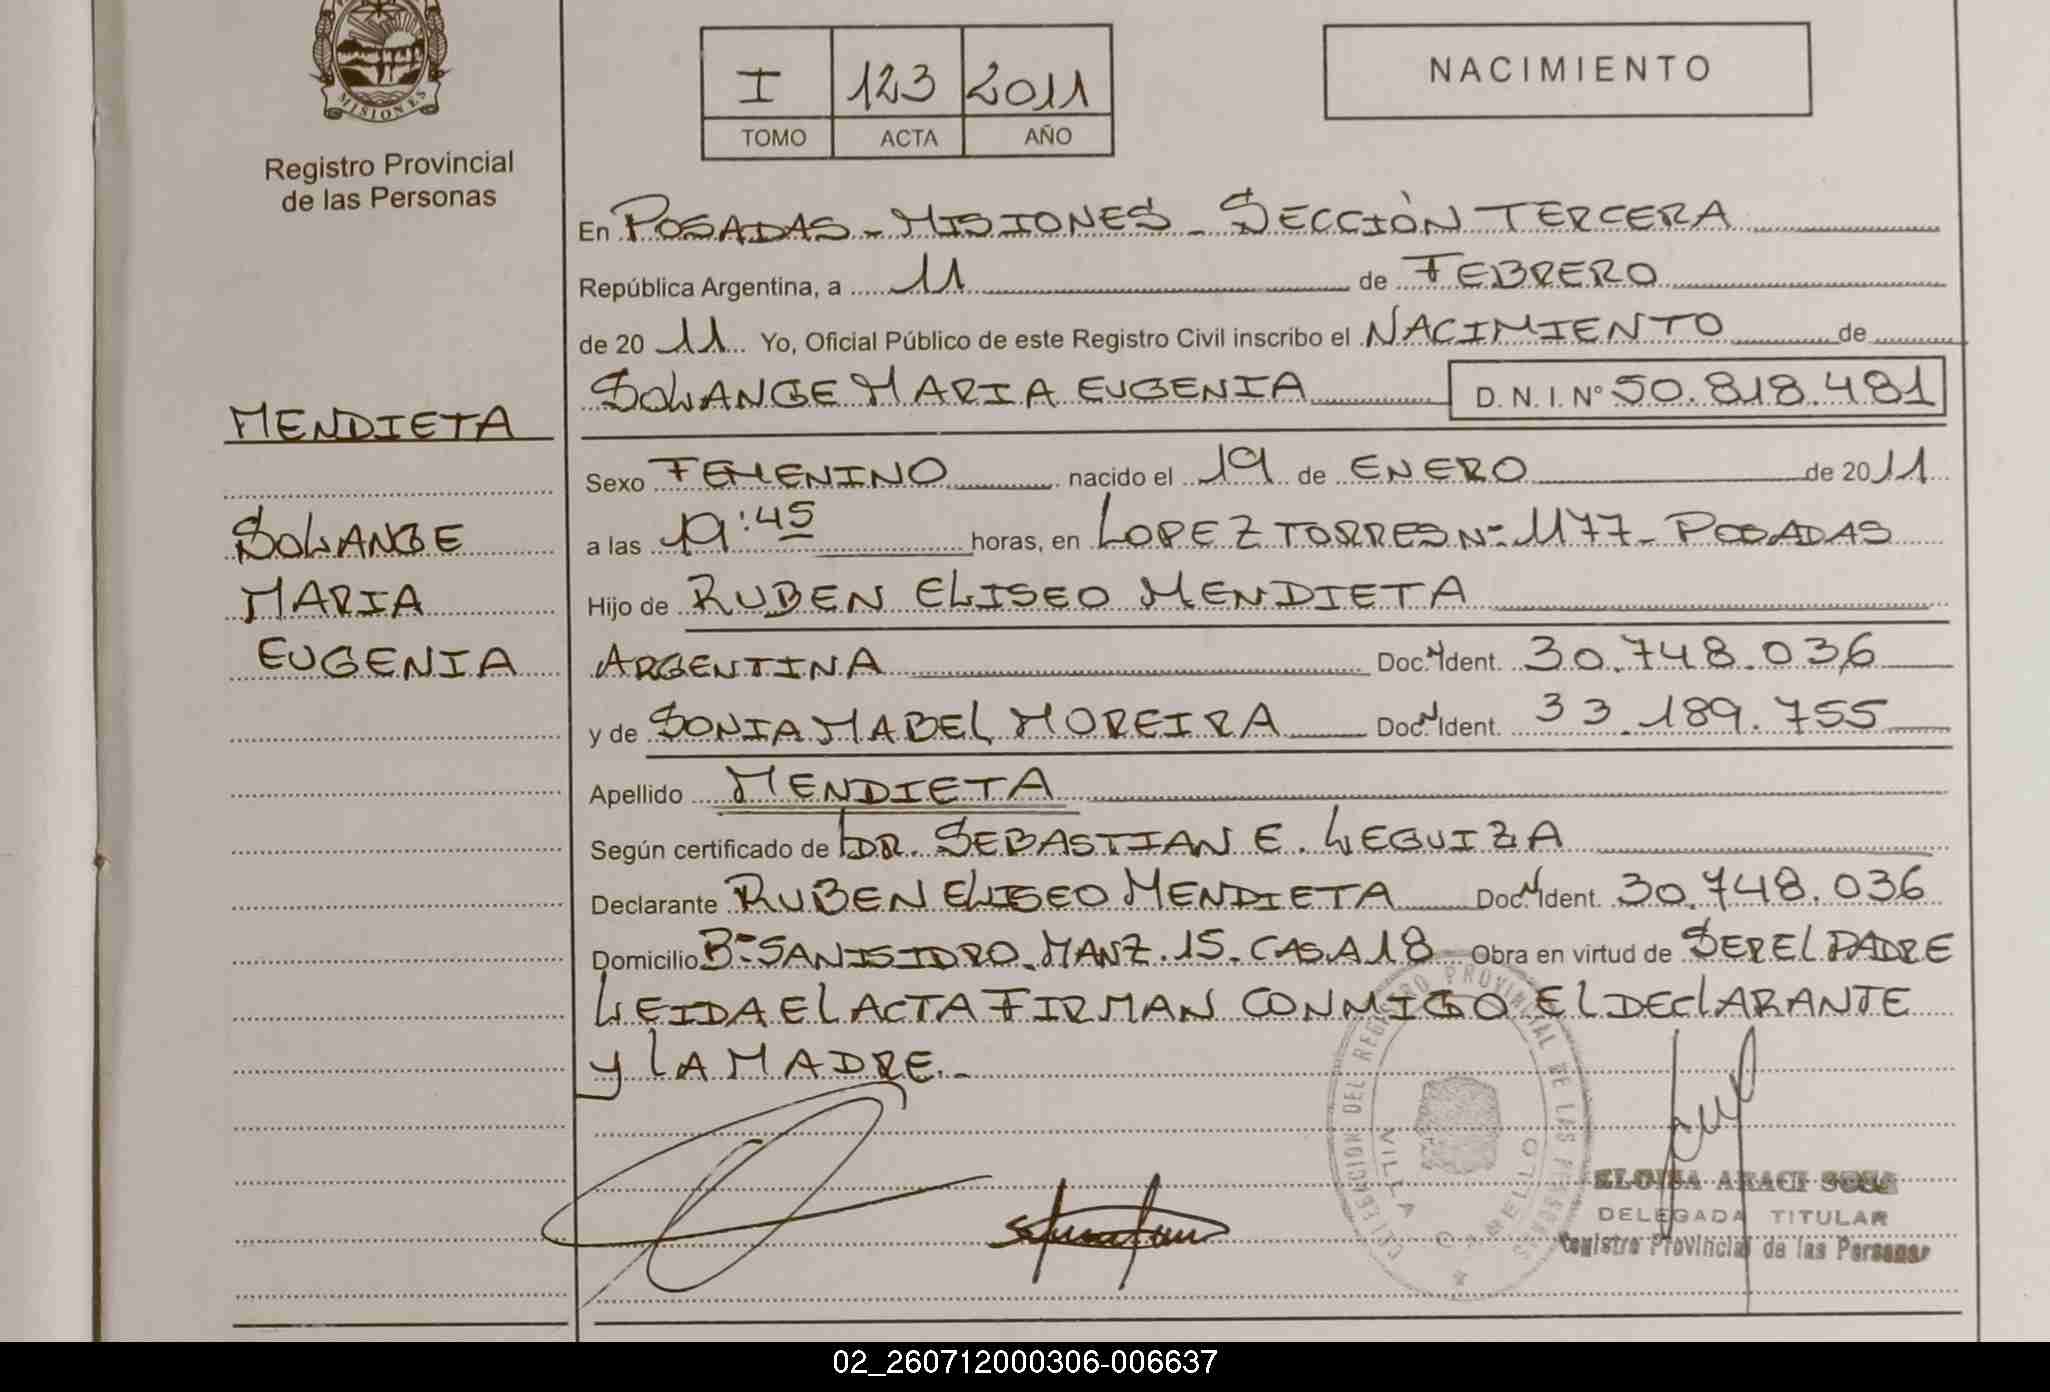 MISIONES
Registro Provincial
de las Personas
I 123 2011
TOMO ACTA AÑO
NACIMIENTO
En POSADAS - MISIONES - SECCIÓN TERCERA
República Argentina, a 11 de FEBRERO
de 20 11 Yo, Oficial Público de este Registro Civil inscribo el NACIMIENTO de
SOLANGE MARIA EUGENIA D. N. I. N° 50.818.481
MENDIETA
SOLANGE
MARIA
EUGENIA
Sexo FEMENINO nacido el 19 de ENERO de 2011
a las 19:45 horas, en LOPEZ TORRES Nº 1177 - POSADAS
Hijo de RUBEN ELISEO MENDIETA
ARGENTINA Doc. N Ident. 30.748.036
y de SONIA MABEL MOREIRA Doc. N Ident. 33.189.755
Apellido MENDIETA
Según certificado de DR. SEBASTIAN E. LEGUIZA
Declarante RUBEN ELISEO MENDIETA Doc. N Ident. 30.748.036
Domicilio Bº SAN ISIDRO - MANZ. 15 - CASA 18 Obra en virtud de SER EL PADRE
LEIDA EL ACTA FIRMAN CONMIGO EL DECLARANTE
Y LA MADRE.-
DELEGACION DEL REGISTRO PROVINCIAL DE LAS PERSONAS
VILLA CABELLO
ELOISA ARACI SOSA
DELEGADA TITULAR
Registro Provincial de las Personas
02_260712000306-006637